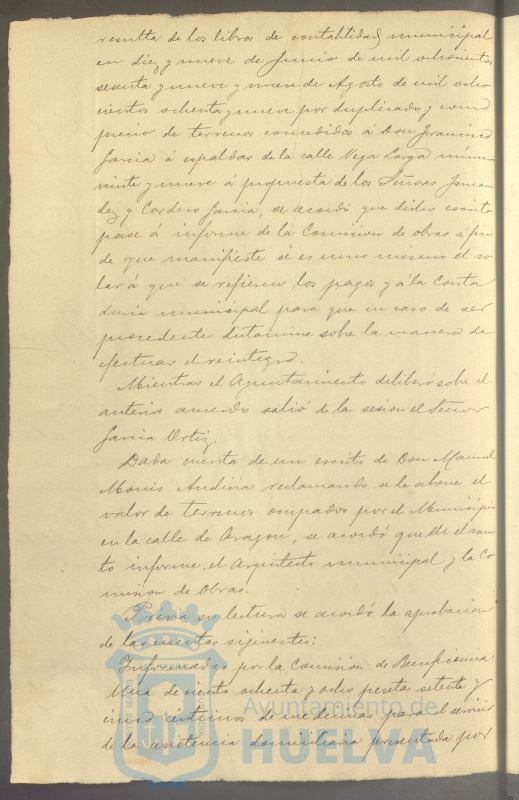 resulta de los libros de contabilidad municipal
en diez y nueve de Junio de mil ochocientos
sesenta y nueve y nueve de Agosto de mil ocho
cientos ochenta y nueve por duplicado y como
precio de terrenos concedidos á Don Francisco
Garcia á espaldas de la calle Vega Larga número
veinte y nueve á propuesta de los Señores Fernan
dez y Cordero Garcia, se acordó que dicho escrito
pase á informe de la Comision de obras á fin
de que manifieste si es uno mismo el so
lar á que se refieren los pagos y á la Conta
duria municipal para que en caso de ser
procedente dictamine sobre la manera de
efectuar el reintegro.
Mientras el Ayuntamiento deliberó sobre el
anterior acuerdo salió de la sesion el Señor
Garcia Ortiz.
Dada cuenta de un escrito de Don Manuel
Monis reclamando se le abone el
valor de terrenos ocupados por el Municipio
en la calle de Aragon, se acordó que de el asun
to informe el Arquitecto municipal y la Co
mision de Obras.
Previa su lectura se acordó la aprobacion
de las cuentas siguientes:
Informadas por la Comision de Beneficencia:
Una de ciento ochenta y ocho pesetas setenta y
cinco céntimos de medicinas para el servicio
de la asistencia domiciliaria presentada por
Ayuntamiento de
HUELVA